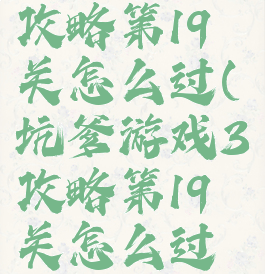 攻略第19
关怎么过(
坑爹游戏3
攻略第19
关怎么过